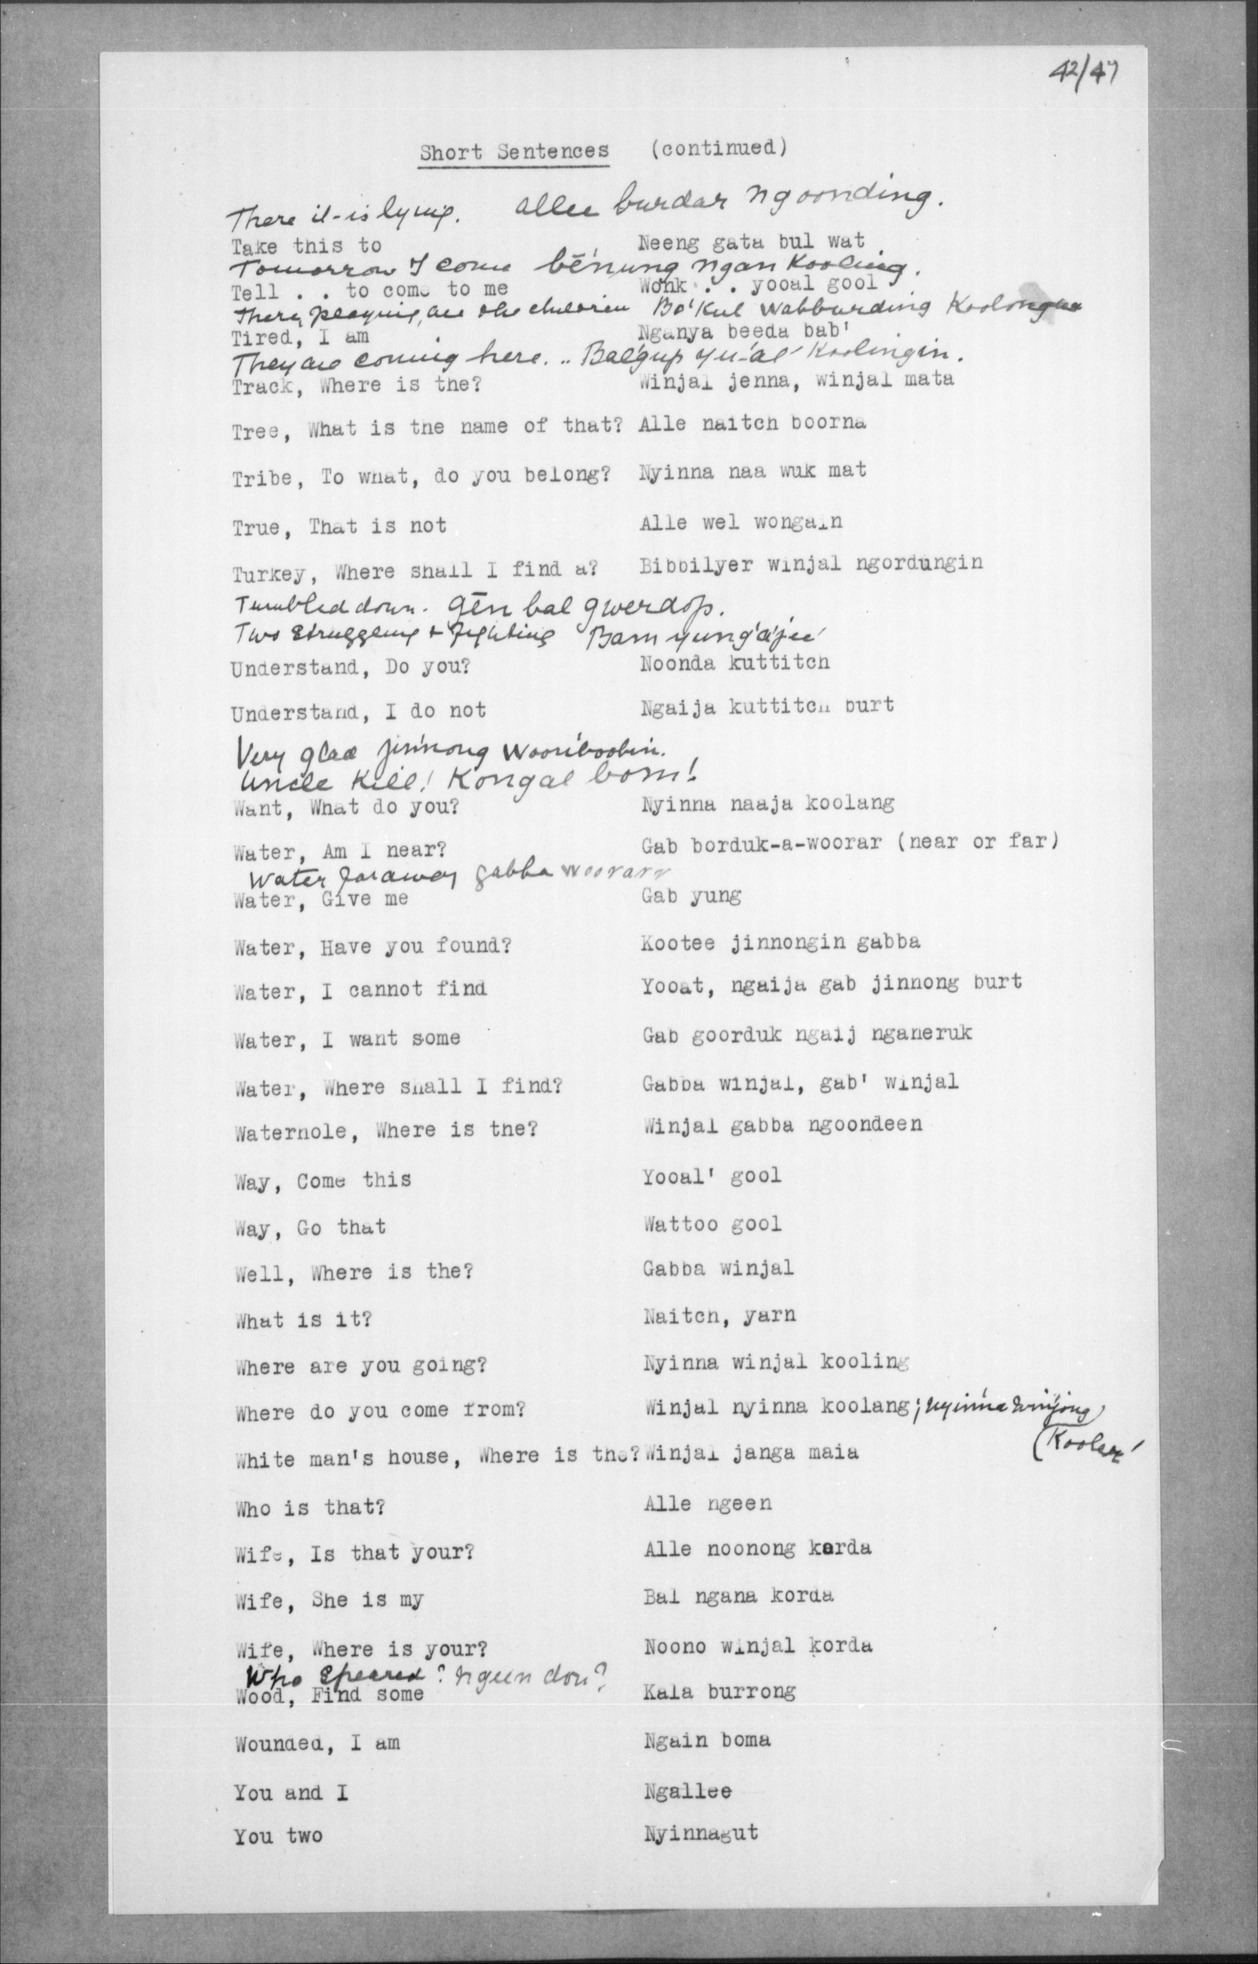 42/47
Short Sentences (continued)
There it is lying. allee burdar ngoonding.
Take this to Neeng gata bul wat
Tomorrow I come bēnung ngan Kooling.
Tell . . to come to me Wonk . . yooal gool
There, playing, are the children Bo'kul wabburding Koolongur
Tired, I am Nganya beeda bab'
They are coming here. .. Balgup yu-al Koolingin.
Track, Where is the? Winjal jenna, winjal mata
Tree, What is the name of that? Alle naitch boorna
Tribe, To what, do you belong? Nyinna naa wuk mat
True, That is not Alle wel wongain
Turkey, Where shall I find a? Bibbilyer winjal ngordungin
Tumbled down. gēn bal gwerdop.
Two struggling & fighting Bam yung'a'jee
Understand, Do you? Noonda kuttitch
Understand, I do not Ngaija kuttitch burt
Very glad jinnong wooriboobin.
Uncle Kill! Kongal bom!
Want, What do you? Nyinna naaja koolang
Water, Am I near? Gab borduk-a-woorar (near or far)
Water faraway gabba woorarr
Water, Give me Gab yung
Water, Have you found? Kootee jinnongin gabba
Water, I cannot find Yooat, ngaija gab jinnong burt
Water, I want some Gab goorduk ngaij nganeruk
Water, Where shall I find? Gabba winjal, gab' winjal
Waterhole, Where is the? Winjal gabba ngoondeen
Way, Come this Yooal' gool
Way, Go that Wattoo gool
Well, Where is the? Gabba winjal
What is it? Naitch, yarn
Where are you going? Nyinna winjal kooling
Where do you come from? Winjal nyinna koolang; nyinna winjong
(Kooler
White man's house, Where is the? Winjal janga maia
Who is that? Alle ngeen
Wife, Is that your? Alle noonong korda
Wife, She is my Bal ngana korda
Wife, Where is your? Noono winjal korda
Who speared? ngeen don?
Wood, Find some Kala burrong
Wounded, I am Ngain boma
You and I Ngallee
You two Nyinnagut